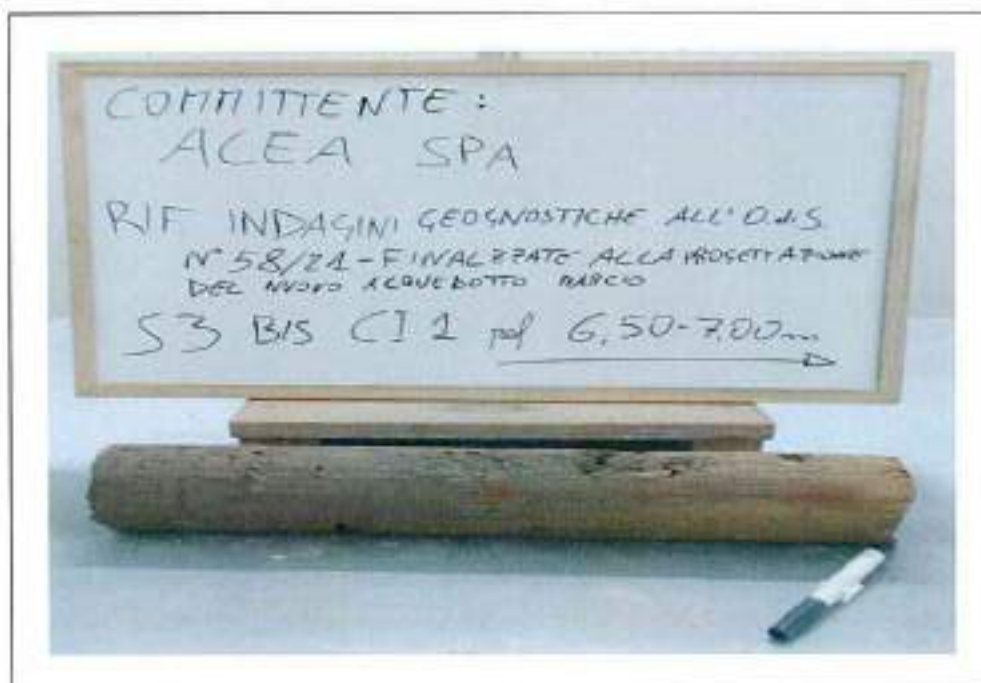 COMMITTENTE :
ACEA SPA
RIF INDAGINI GEOGNOSTICHE ALL' O.d.S.
N° 58/21 - FINALIZZATE ALLA PROGETTAZIONE
DEL NUOVO ACQUEDOTTO MARCIO
S3 BIS CI 1 prof 6,50-7,00m